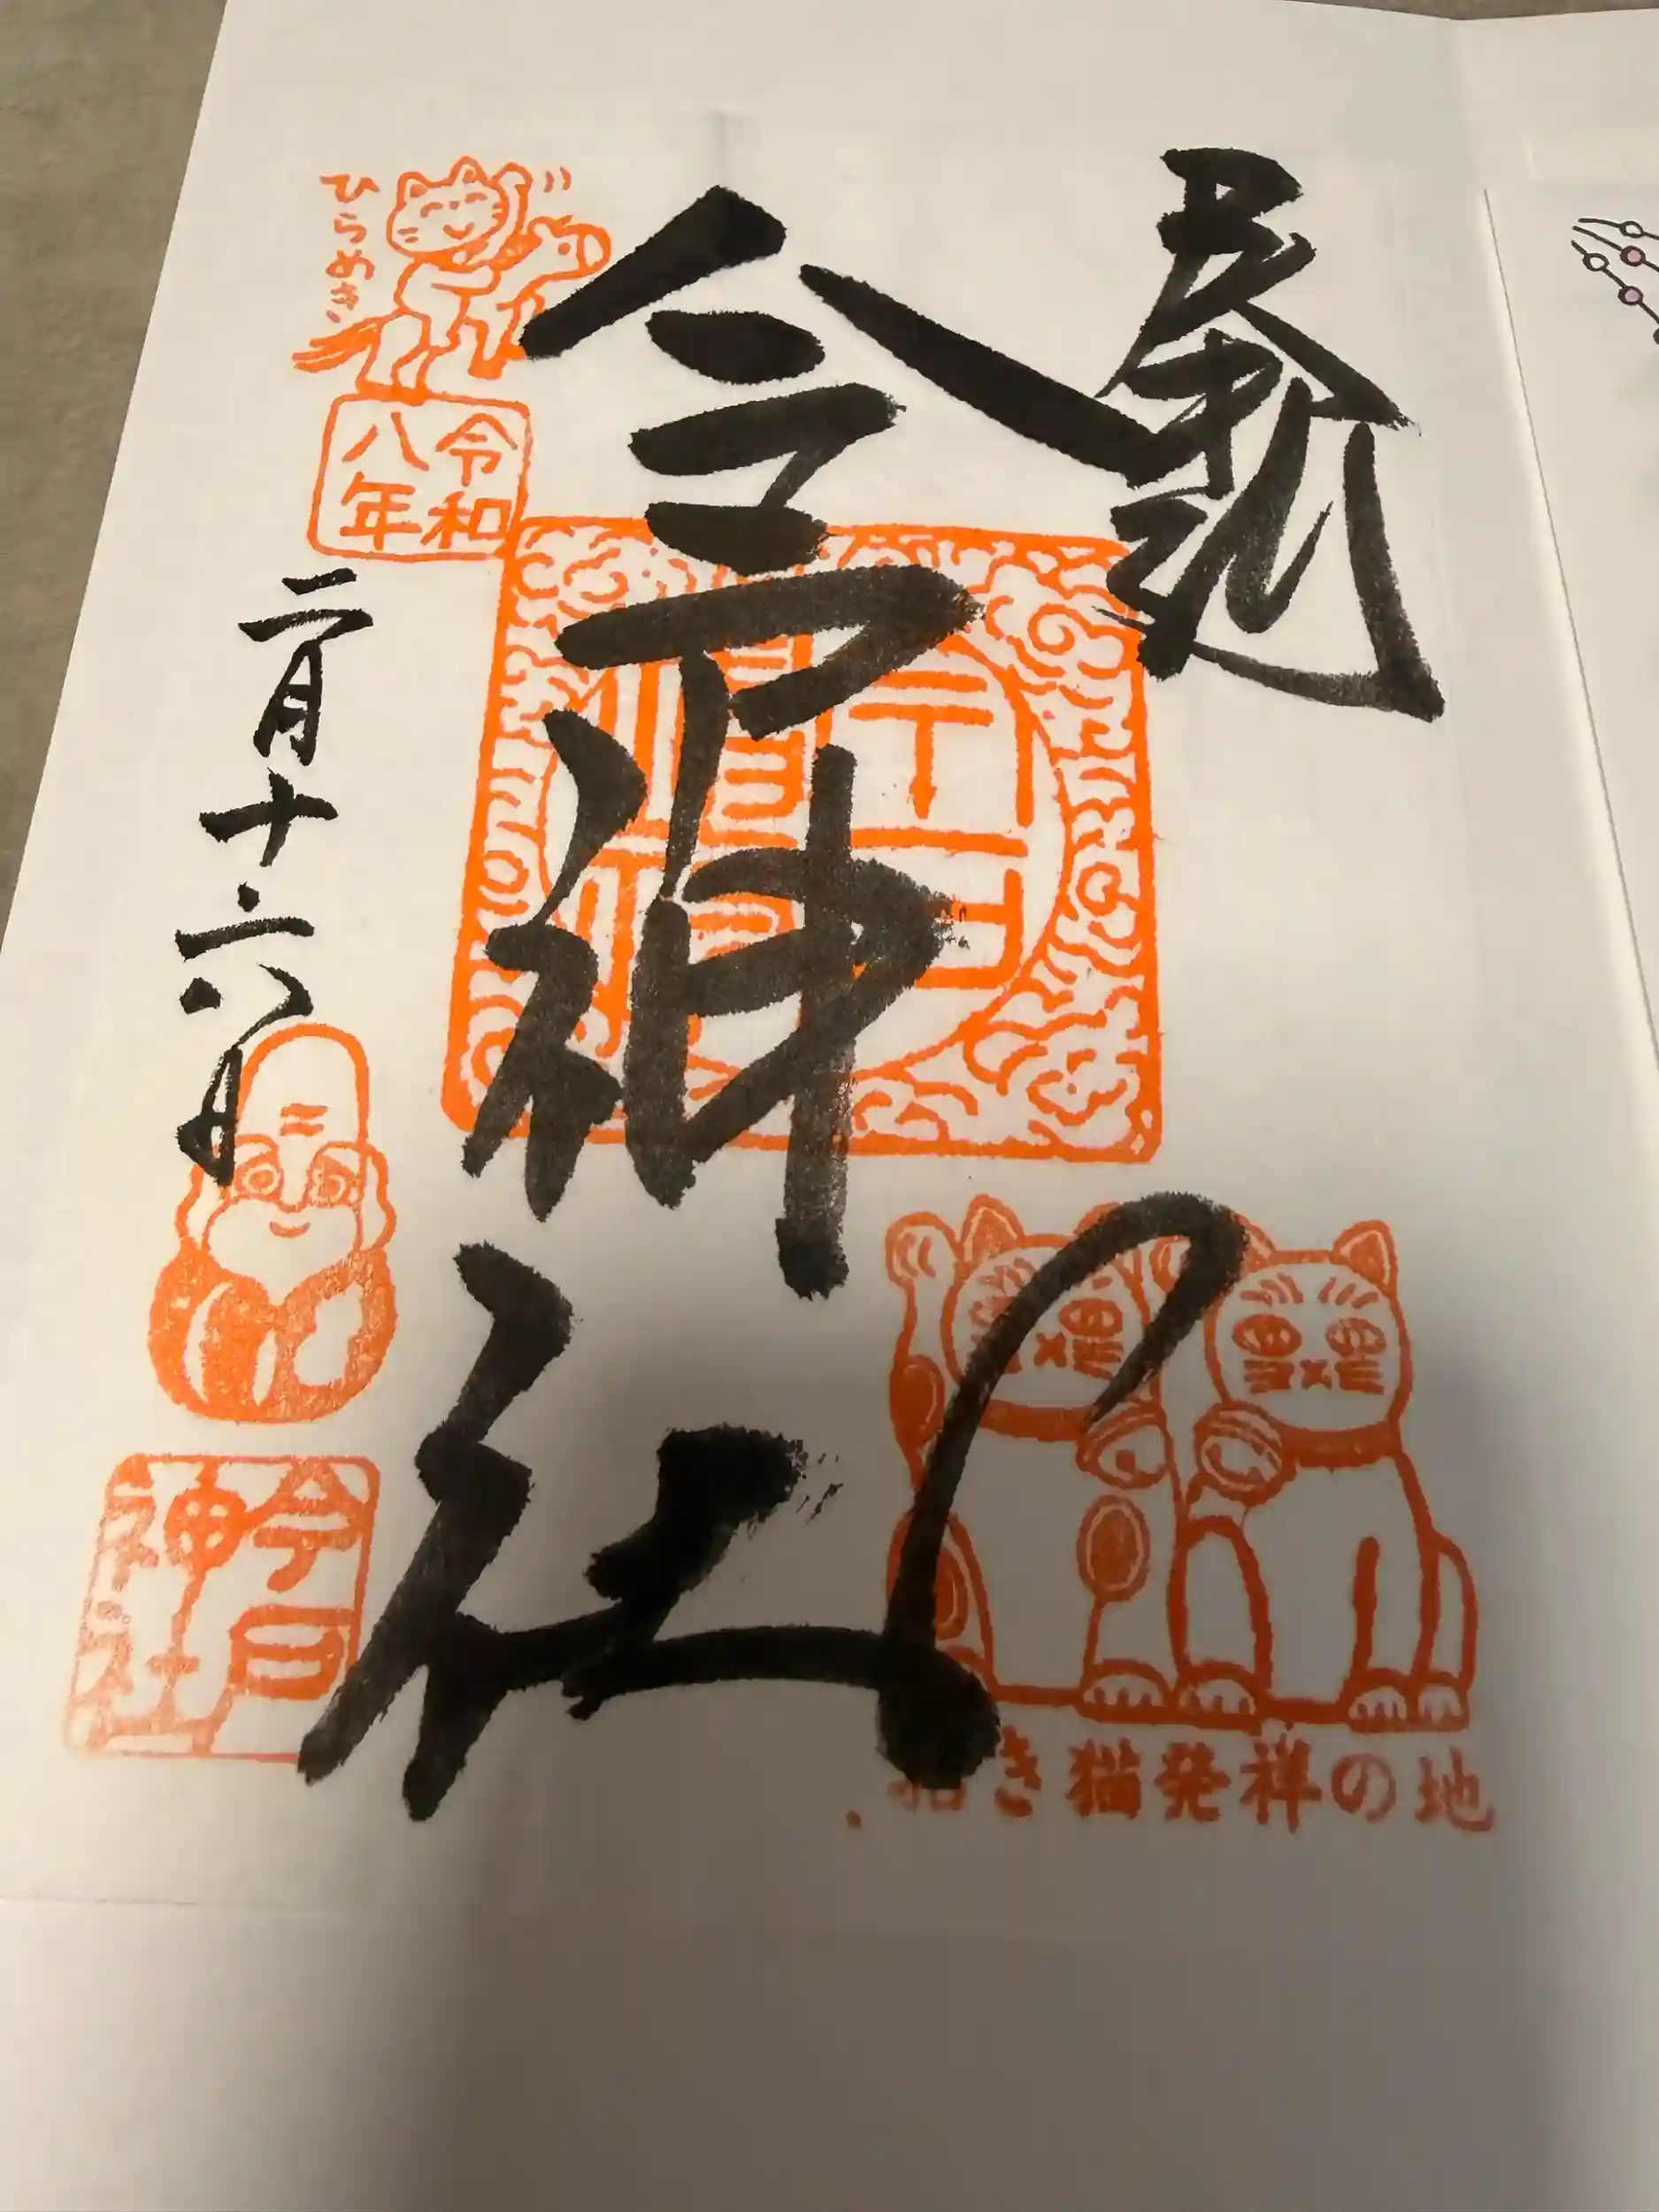 奉拝
今戸神社
招き猫発祥の地
ひらめき
令和
八年
二月十六日
今戸
神社